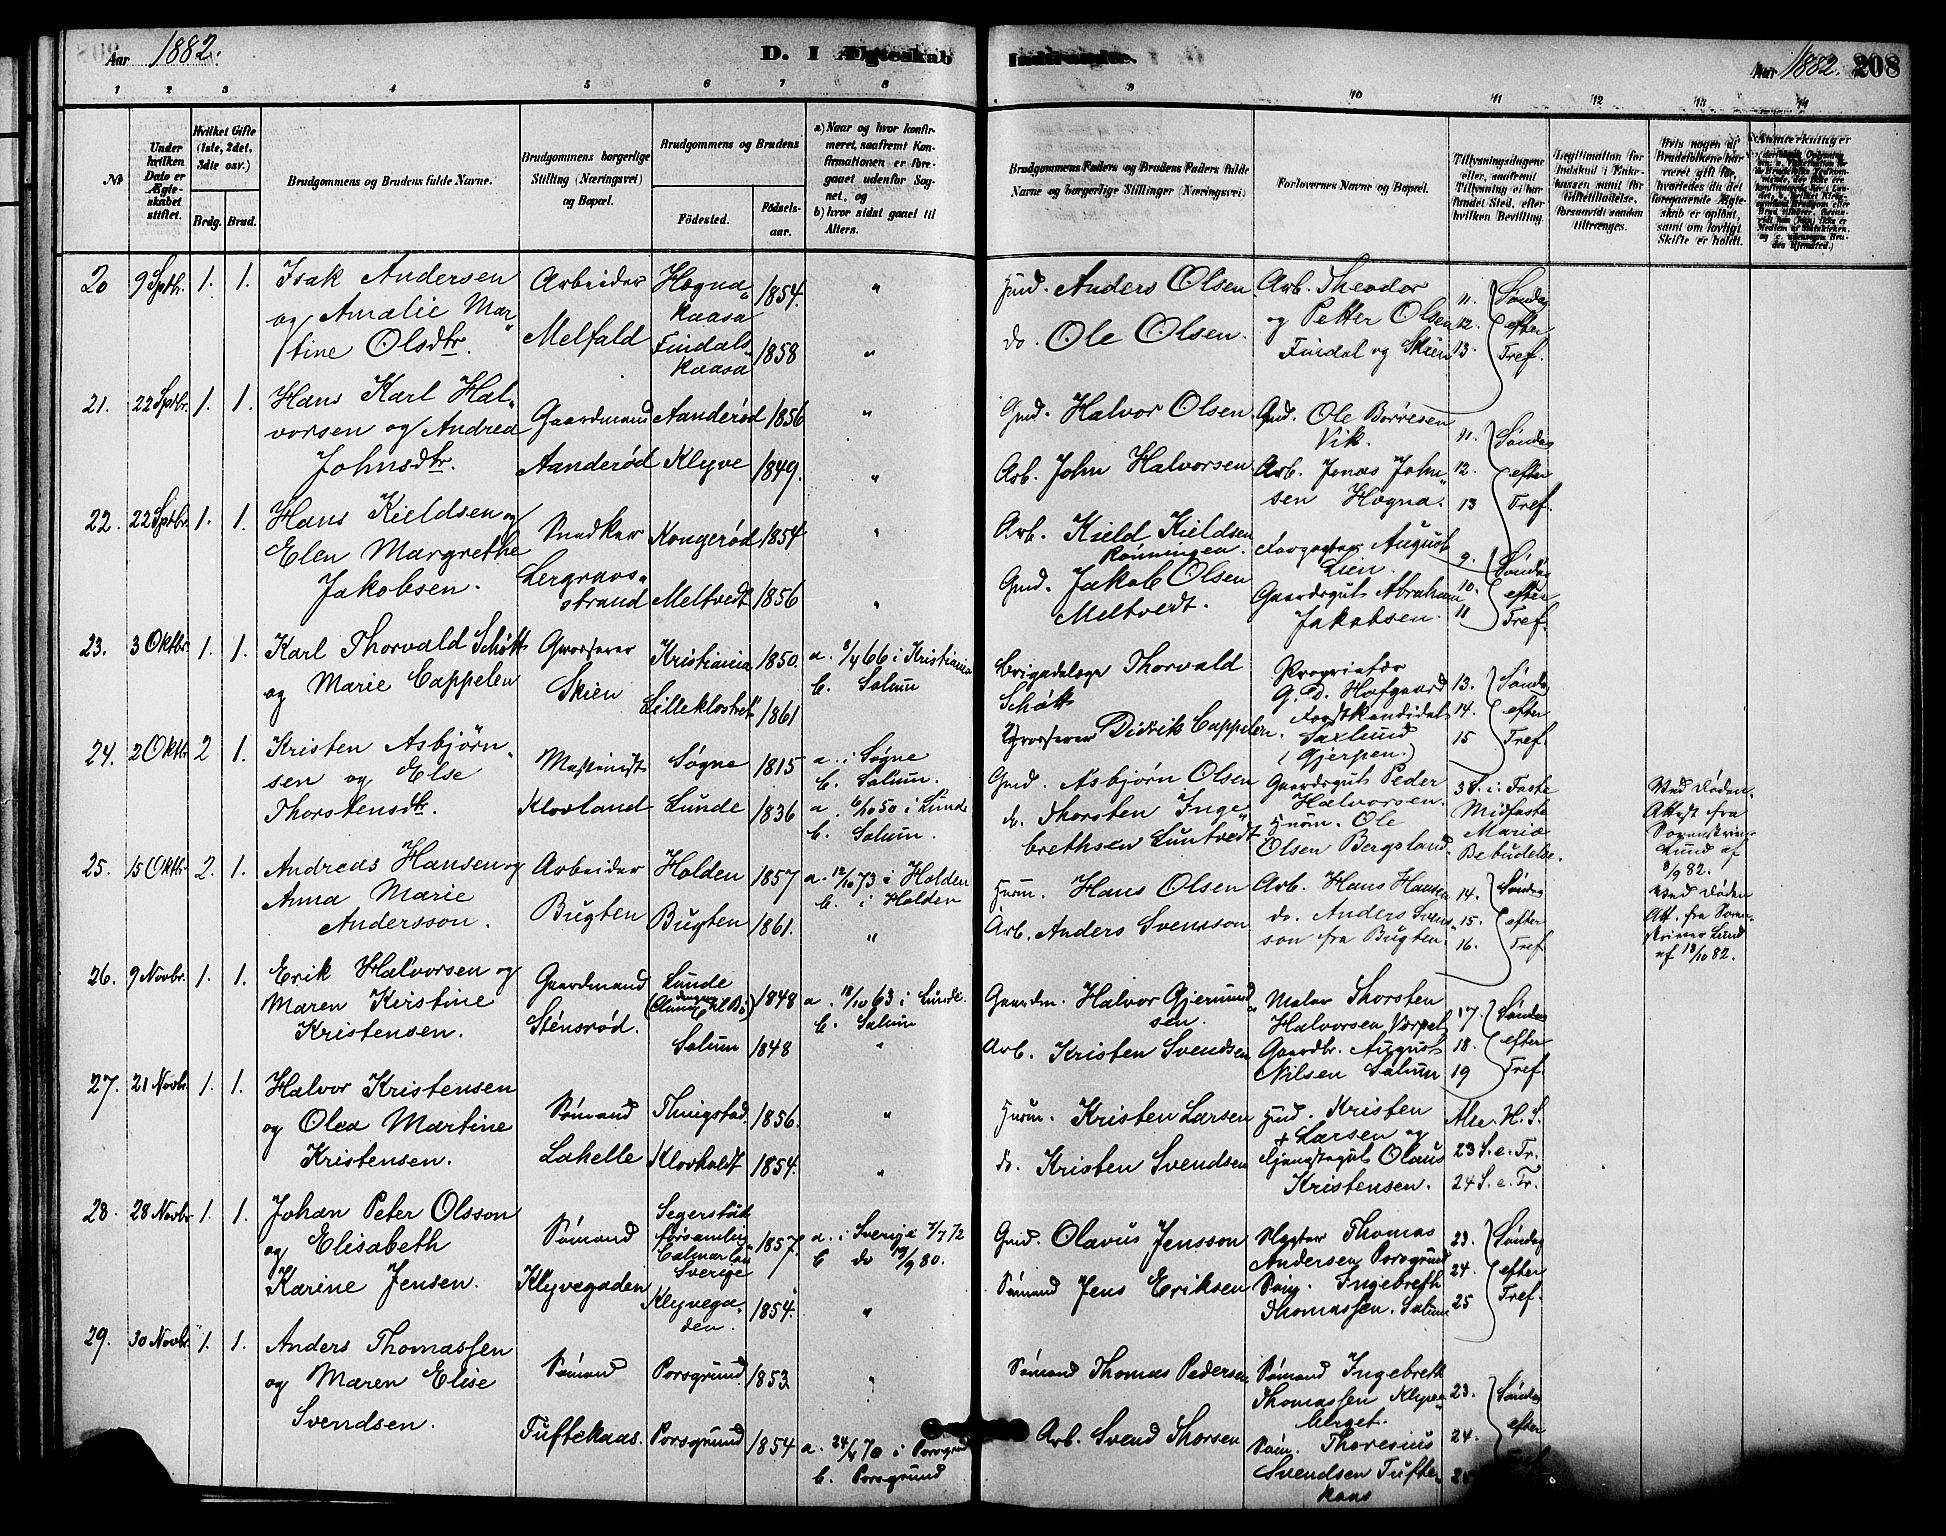 Aar 1882.
D. I Ægteskab
Indtraadte.
Aar 1882. 208
1 2 3 4 5 6 7 8 9 10 11 12 13 14
No
Under hvilken Dato er Ægteskabet stiftet.
Hvilket Gifte (1ste, 2det, 3die osv.)
Brdg. Brud.
Brudgommens og Brudens fulde Navne.
Brudgommens borgerlige Stilling (Næringsvei) og Bopæl.
Brudgommens og Brudens
Födested.
Födsels-aar.
a) Naar og hvor konfirmeret, saafremt Konfirmationen er foregaaet udenfor Sognet, og
b) hvor sidst gaaet til Alters.
Brudgommens Faders og Brudens Faders fulde Navne og borgerlige Stillinger (Næringsvei).
Forlovernes Navne og Bopæl.
Tillysningsdagene eller, saafremt Tillysning ei har fundet Sted, efter hvilken Bevilling.
Legitimation for Indskud i Enkekassen samt for Giftetilladelse, forsaavidt saadan tiltrænges.
Hvis nogen af Brudefolkene har været gift før, hvorledes da det foregaaende Ægteskab er oplöst, samt om lovligt Skifte er holdt.
20 9 Septbr. 1. 1. Isak Andersen og Amalie Martine Olsdtr. Arbeider Melfald Høgnakaasa 1854. " Findalskaasa 1858 "
Hmd. Anders Olsen do. Ole Olsen. Arb. Theodor og Petter Olsen Findal og Skien 11. 12. 13. Søndag efter Tref.
21. 22 Septbr. 1. 1. Hans Karl Halvorsen og Andrea Johnsdtr. Gaardmand Aanderød Aanderød 1856 " Klyve 1849. "
Gmd. Halvor Olsen. Arb. John Halvorsen Gmd. Ole Borresen Vik. Arb. Jonas Johnsen Høgna. 11. 12. 13 Søndag efter Tref.
22. 22 Septbr. 1. 1. Hans Kieldsen og Elen Margrethe Jakobsen. Snedker Lergravsstrand Kongerød 1854 " Meltvedt 1856 "
Arb. Kield Kieldsen Rønningen. Gmd. Jakob Olsen Meltvedt. Forpagter August Lien. Gaardsgut Abraham Jakobsen. 9. 10. 11 Søndag efter Tref.
23. 3 Oktbr. 1. 1. Karl Thorvald Schøtt og Marie Cappelen Grosserer Skien Kristiania 1850. Lilleklostret 1861 a. 8/4 66 i Kristiania b. Solum
Brigadelæge Thorvald Schøtt Grosserer Didrik Cappelen. Proprietær G. D. Hafgaard Forstkandidat Saxlund (Gjerpen.) 13. 14. 15 Søndag efter Tref.
24. 2 Oktbr. 2 1. Kristen Asbjørnsen og Else Thorstensdtr. Maskinist Klovland Søgne 1815 a. i Søgne b. Solum. Lunde 1836 a. 6/10 50 i Lunde b. Solum.
Gmd. Asbjørn Olsen do. Thorsten Ingebrethsen Luntvedt Gaardsgut Peder Halvorsen. Husm. Ole Olsen Bergsland. 3 S. i. Faste Midfaste Mariæ Bebudelse. Ved Døden. Attest fra Sorenskriver Lund af 8/9 82.
25. 15 Oktbr. 2. 1. Andreas Hansen og Anna Marie Andersson. Arbeider Bugten Holden 1857 a. 12/10 73 i Holden b. i Holden Bugten 1861. "
Husm. Hans Olsen Arb. Anders Svensson Arb. Hans Hansen do. Anders Svensson fra Bugten. 14. 15. 16. Søndag efter Tref. Ved Døden Att. fra Sorenskriver Lund af 13/10 82.
26. 9 Novbr. 1. 1. Erik Halvorsen og Maren Kirstine Kristensen. Gaardmand Stensrød. Lunde 1848 a. 18/10 63 i Lunde. b. Solum Solum 1848 "
Gaardm. Halvor Gjermundsen. Arb. Kristen Svendsen Maler Thorsten Halvorsen, Værpe Gaardbr. August Nilsen Solum 17. 18. 19 Søndag efter Tref.
27. 21 Novbr. 1. 1. Halvor Kristensen og Olea Martine Kristensen. Sømand Lahelle Thingstad. 1856. " Klovholdt 1854. "
Husm. Kristen Larsen do. Kristen Svendsen Hmd. Kristen Larsen og Tjenestegut Olaus Kristensen. Alle. H. S. 23 S. e. Tr. 24 S. e. Tr.
28. 28 Novbr. 1. 1. Johan Peter Olsson og Elisabeth Karine Jensen. Sømand Klyvegaden Segerstad forsamling Calmar Län Sverige 1857 a. i Sverige 7/7 72 b. do 19/9 80. Klyvegaden. 1854. "
Gmd. Olavus Jensson Sømand Jens Eriksen Thomas Andersen Porsgrund Søm. Ingebreth Thomassen. Solum 23. 24. 25 Søndag efter Tref.
29. 30 Novbr. 1. 1. Anders Thomassen og Maren Elise Svendsen. Sømand Tuftekaas. Porsgrund. 1853 " Porsgrund 1854 a. 24/4 70 i Porsgrund b. Porsgrund
Sømand Thomas Pedersen Arb. Svend Thorsen Sømand Ingebreth Thomassen Klyveberget. Søm. Thoresius Svendsen Tuftekaas 23. 24. 25 Søndag efter Tref.